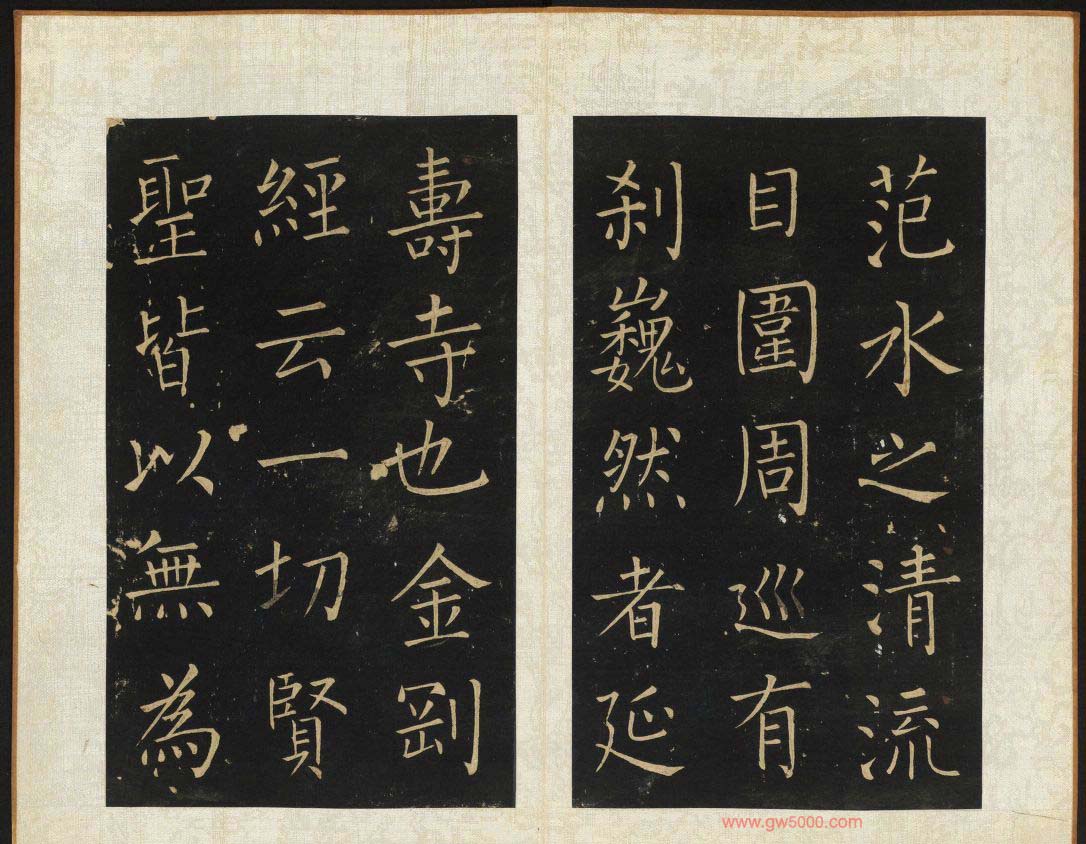 范水之清流
目圍周巡有
刹巍然者延
壽寺也金剛
經云一切賢
聖皆以無為
www.gw5000.com